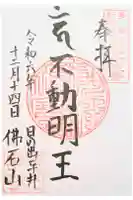 奉拝
不動明王
令和六年
十二月十四日
日の出平井
佛石山